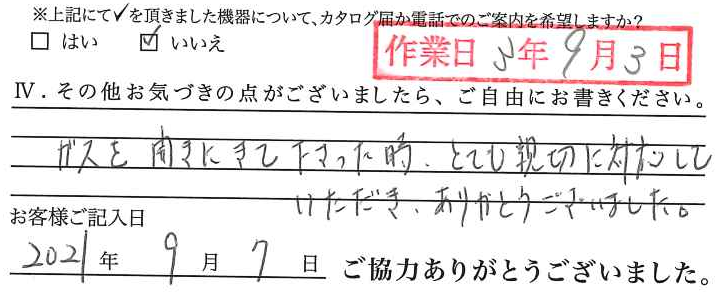 ※上記にて✓を頂きました機器について、カタログ届か電話でのご案内を希望しますか?
□ はい ☑ いいえ
作業日 3年 9月 3日
Ⅳ．その他お気づきの点がございましたら、ご自由にお書きください。
ガスを開きにきて下さった時、とても親切に対応して
いただき、ありがとうございました。
お客様ご記入日
2021年 9月 7日 ご協力ありがとうございました。